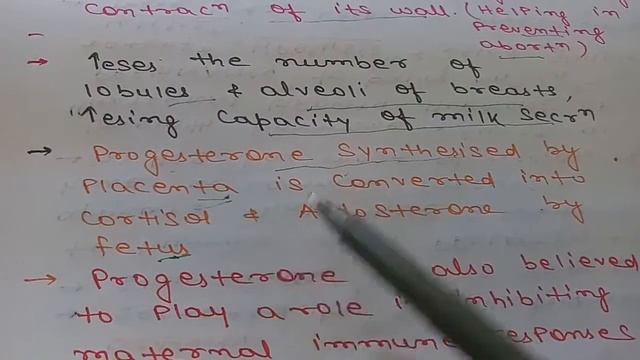 contracn of its wall. (Helping in
preventing
abortn)
→ ↑eses the number of
lobules & alveoli of breasts,
↑esing capacity of milk secrn
→ Progesterone synthesised by
placenta is converted into
cortisol & by
fetus
→ Progesterone also believed
to play a role inhibiting
maternal immune responses